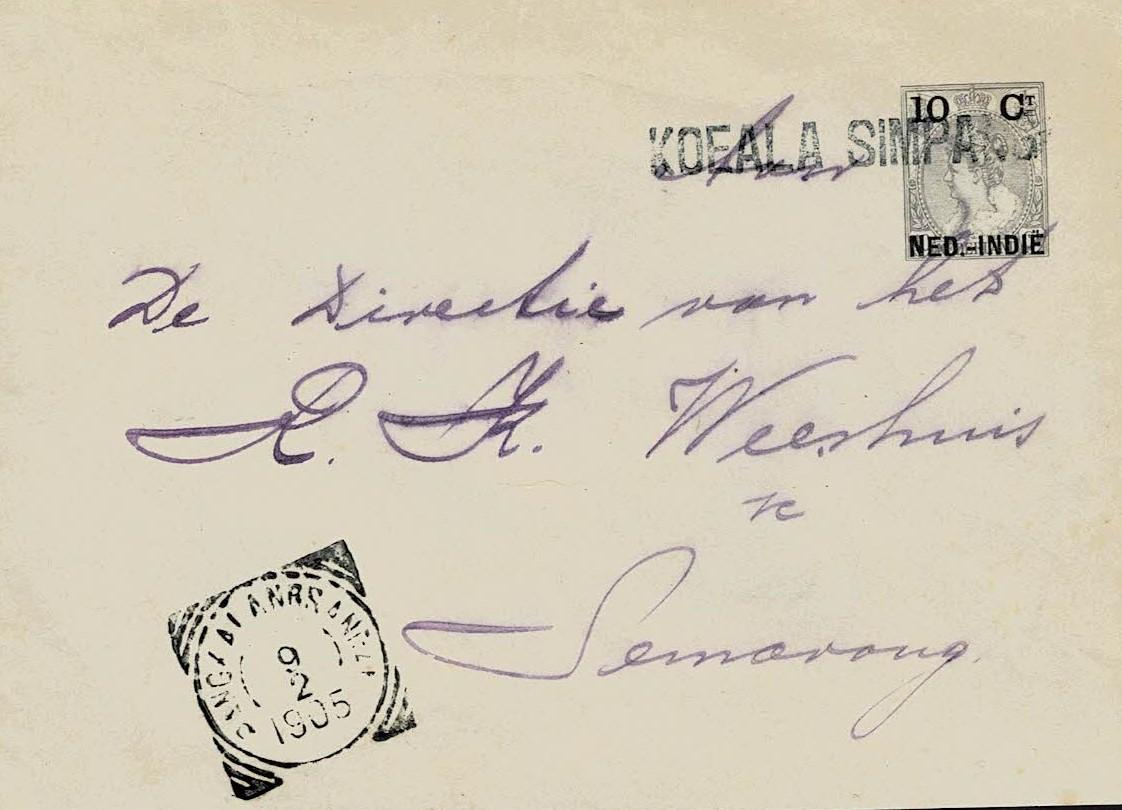 10 CT
KOEALA SIMPANG
Aan
NED.-INDIË
De Directie van het
R. K. Weeshuis
te
Semarang.
9
2
1905